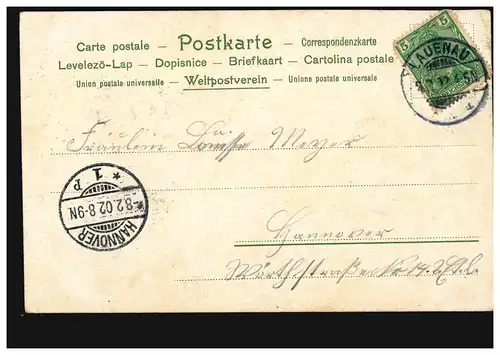 Carte postale — Postkarte — Correspondenzkarte
Levelezö-Lap — Dopisnice — Briefkaart — Cartolina postale
Union postale universelle — Weltpostverein — Unione postale universale
5 5
LAUENAU
Fräulein Louisse Meyer
Hannover
Wörthstraße No 14
HANNOVER
8.2.02.8-9N
* 1 P